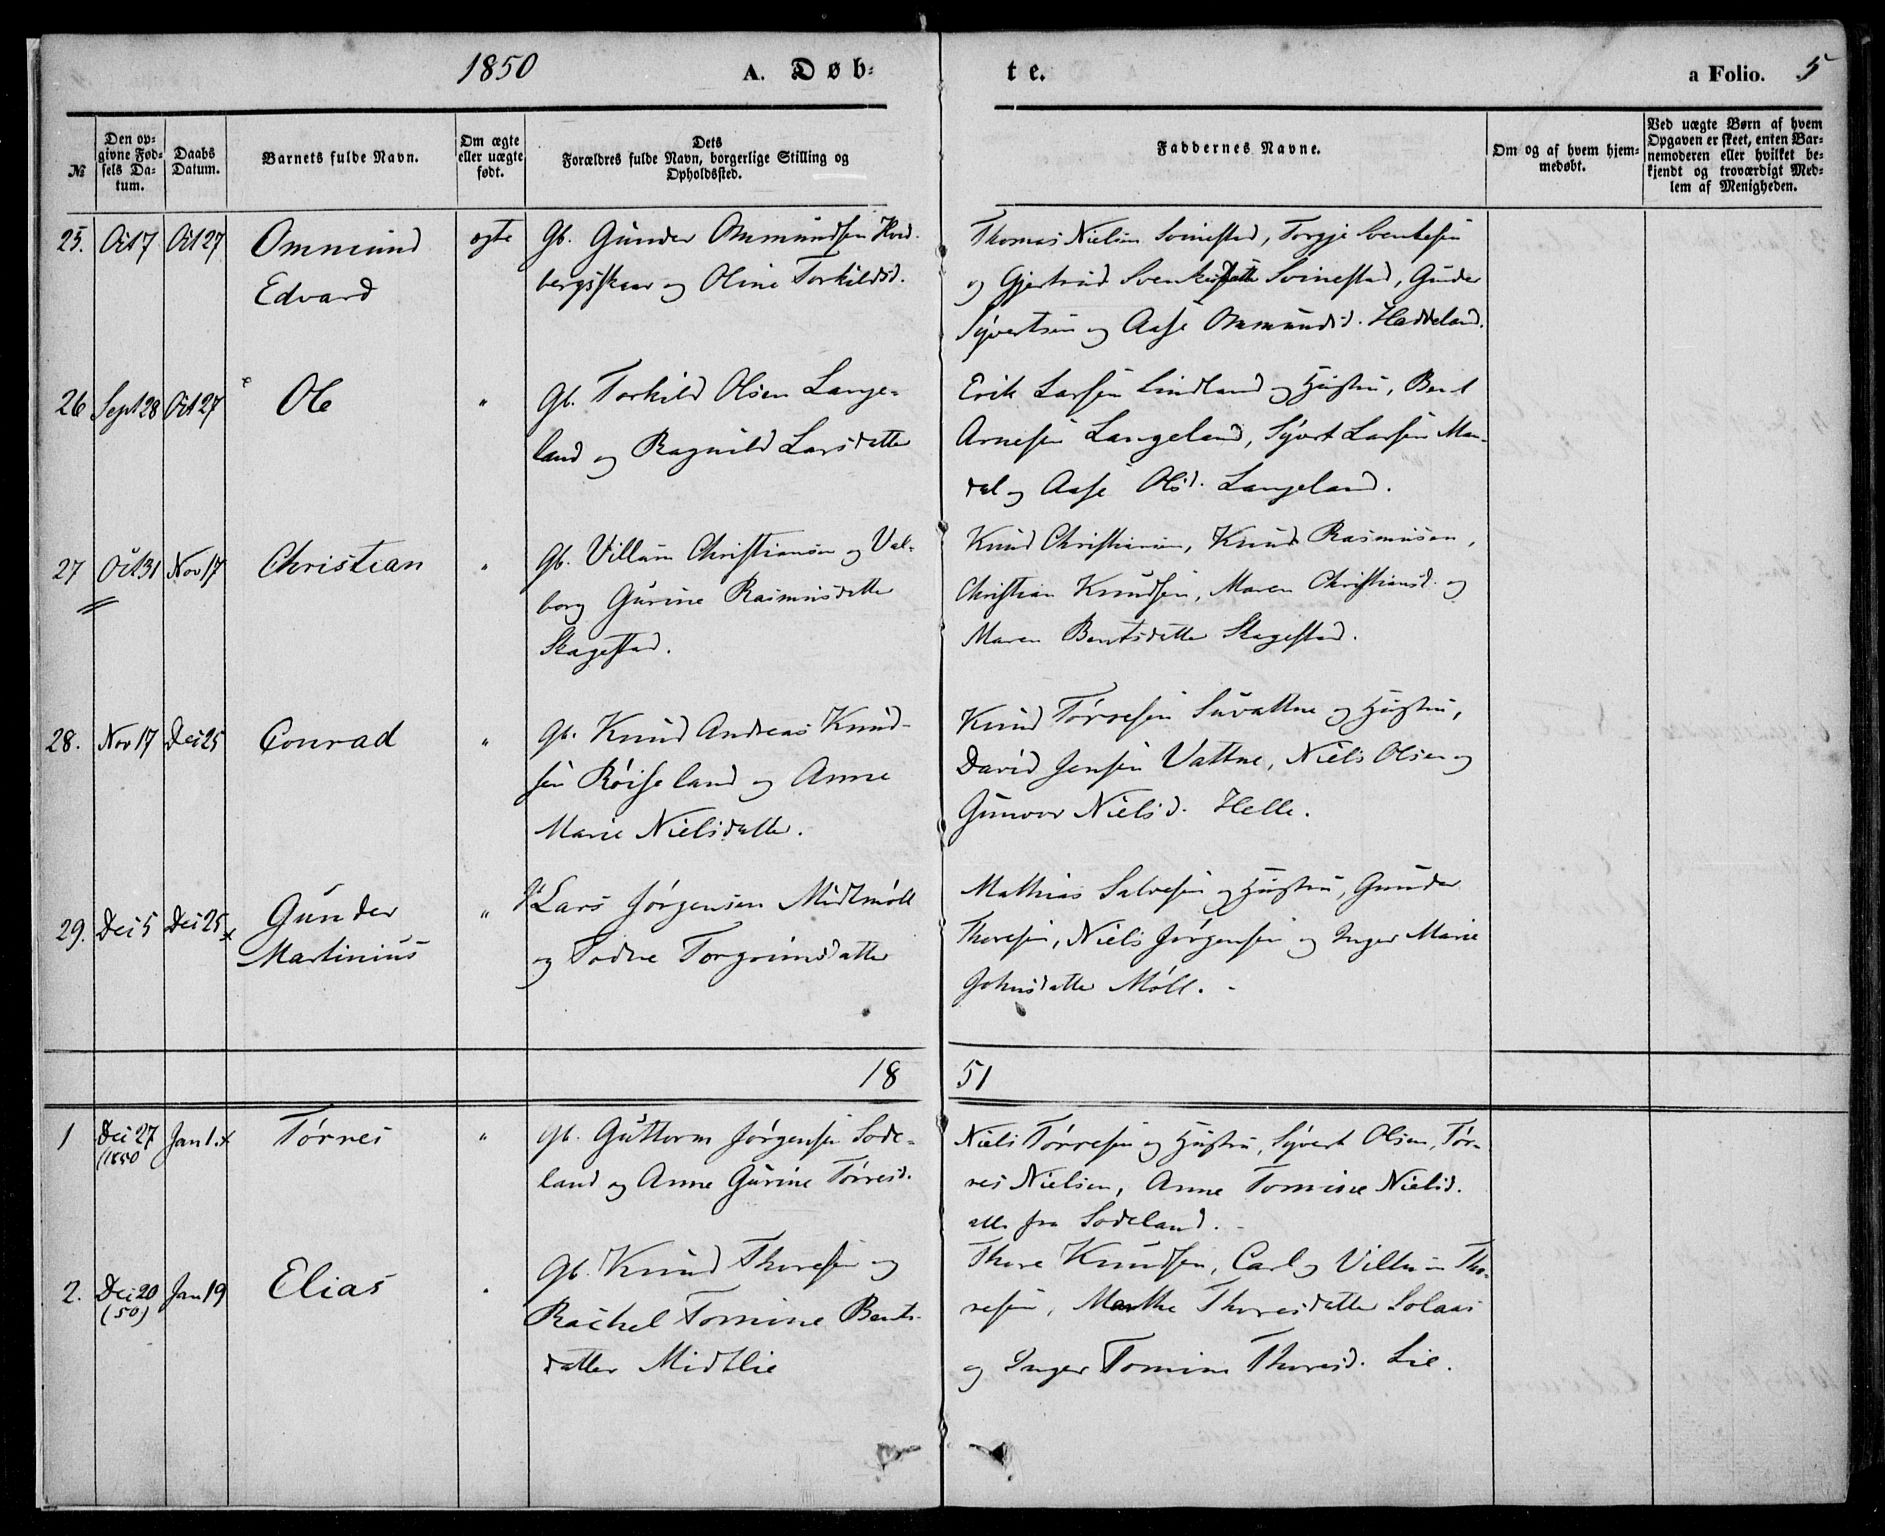 1850 A. Døb- te. a Folio. 5
№
Den op-
givne Fød-
sels Da-
tum.
Daabs
Datum.
Barnets fulde Navn.
Om ægte
eller uægte
født.
Dets
Forældres fulde Navn, borgerlige Stilling og
Opholdssted.
Faddernes Navne.
Om og af hvem hjem-
medøbt.
Ved uægte Børn af hvem
Opgaven er skeet, enten Bar-
nemoderen eller hvilket be-
kjendt og troværdigt Med-
lem af Menigheden.
25. Oct 7 Oct 27 Ommund
Edvard
ægte
Gb. Gunder Ommundsen Hord-
bergsskaar og Oline Torkildsd.
Thomas Nielsen Svinestad, Torgje Svenkesen
og Gjertrud Svenkesdatter Svinestad, Gunder
Syvertsen og Aase Ommundsd. Haddeland.
26 Sept 28 Oct 27 Ole "
Gb. Torkild Olsen Lange-
land og Ragnild Larsdatter
Erik Larsen Lindland og Hustru, Bent
Arnesen Langeland, Syvert Larsen Man-
dal og Aase Olsd. Langeland.
27 Oct 31 Nov 17 Christian "
Gb. Villum Christiansen og Val-
borg Gurine Rasmusdatter
Skagestad.
Knud Christiansen, Knud Rasmusen,
Christian Knudsen, Maren Christiansd. og
Maren Bentsdatter Skagestad.
28. Nov 17 Dec 25 Conrad "
Gb. Knud Andreas Knud-
sen Röiseland og Anne
Marie Nielsdatter.
Knud Törresen Suvattne og Hustru,
David Jensen Vattne, Niels Olsen og
Gunvor Nielsd. Helle.
29. Dec 5 Dec 25 Gunder
Martinius
"
Gb Lars Jörgensen Midtmöll
og Todne Torgrimsdatter
Mathias Salvesen og Hustru, Gunder
Thoresen, Niels Jörgensen og Inger Marie
Johnsdatter Möll.
18 51
1 Dec 27 Jan 1. Törres "
(1850
Gb. Guttorm Jörgensen Sode-
land og Anne Gurine Törresd.
Niels Törresen og Hustru, Syvert Olsen, Tör-
res Nielsen, Anne Tomine Nielsd.
alle fra Sodeland.
2. Dec 20 Jan 19 Elias "
(50)
Gb. Knud Thoresen og
Rachel Tomine Bents-
datter Midtlie
Thore Knudsen, Carl og Villum Tho-
resen, Marthe Thoresdatter Solaas
og Inger Tomine Thoresd. Lie.